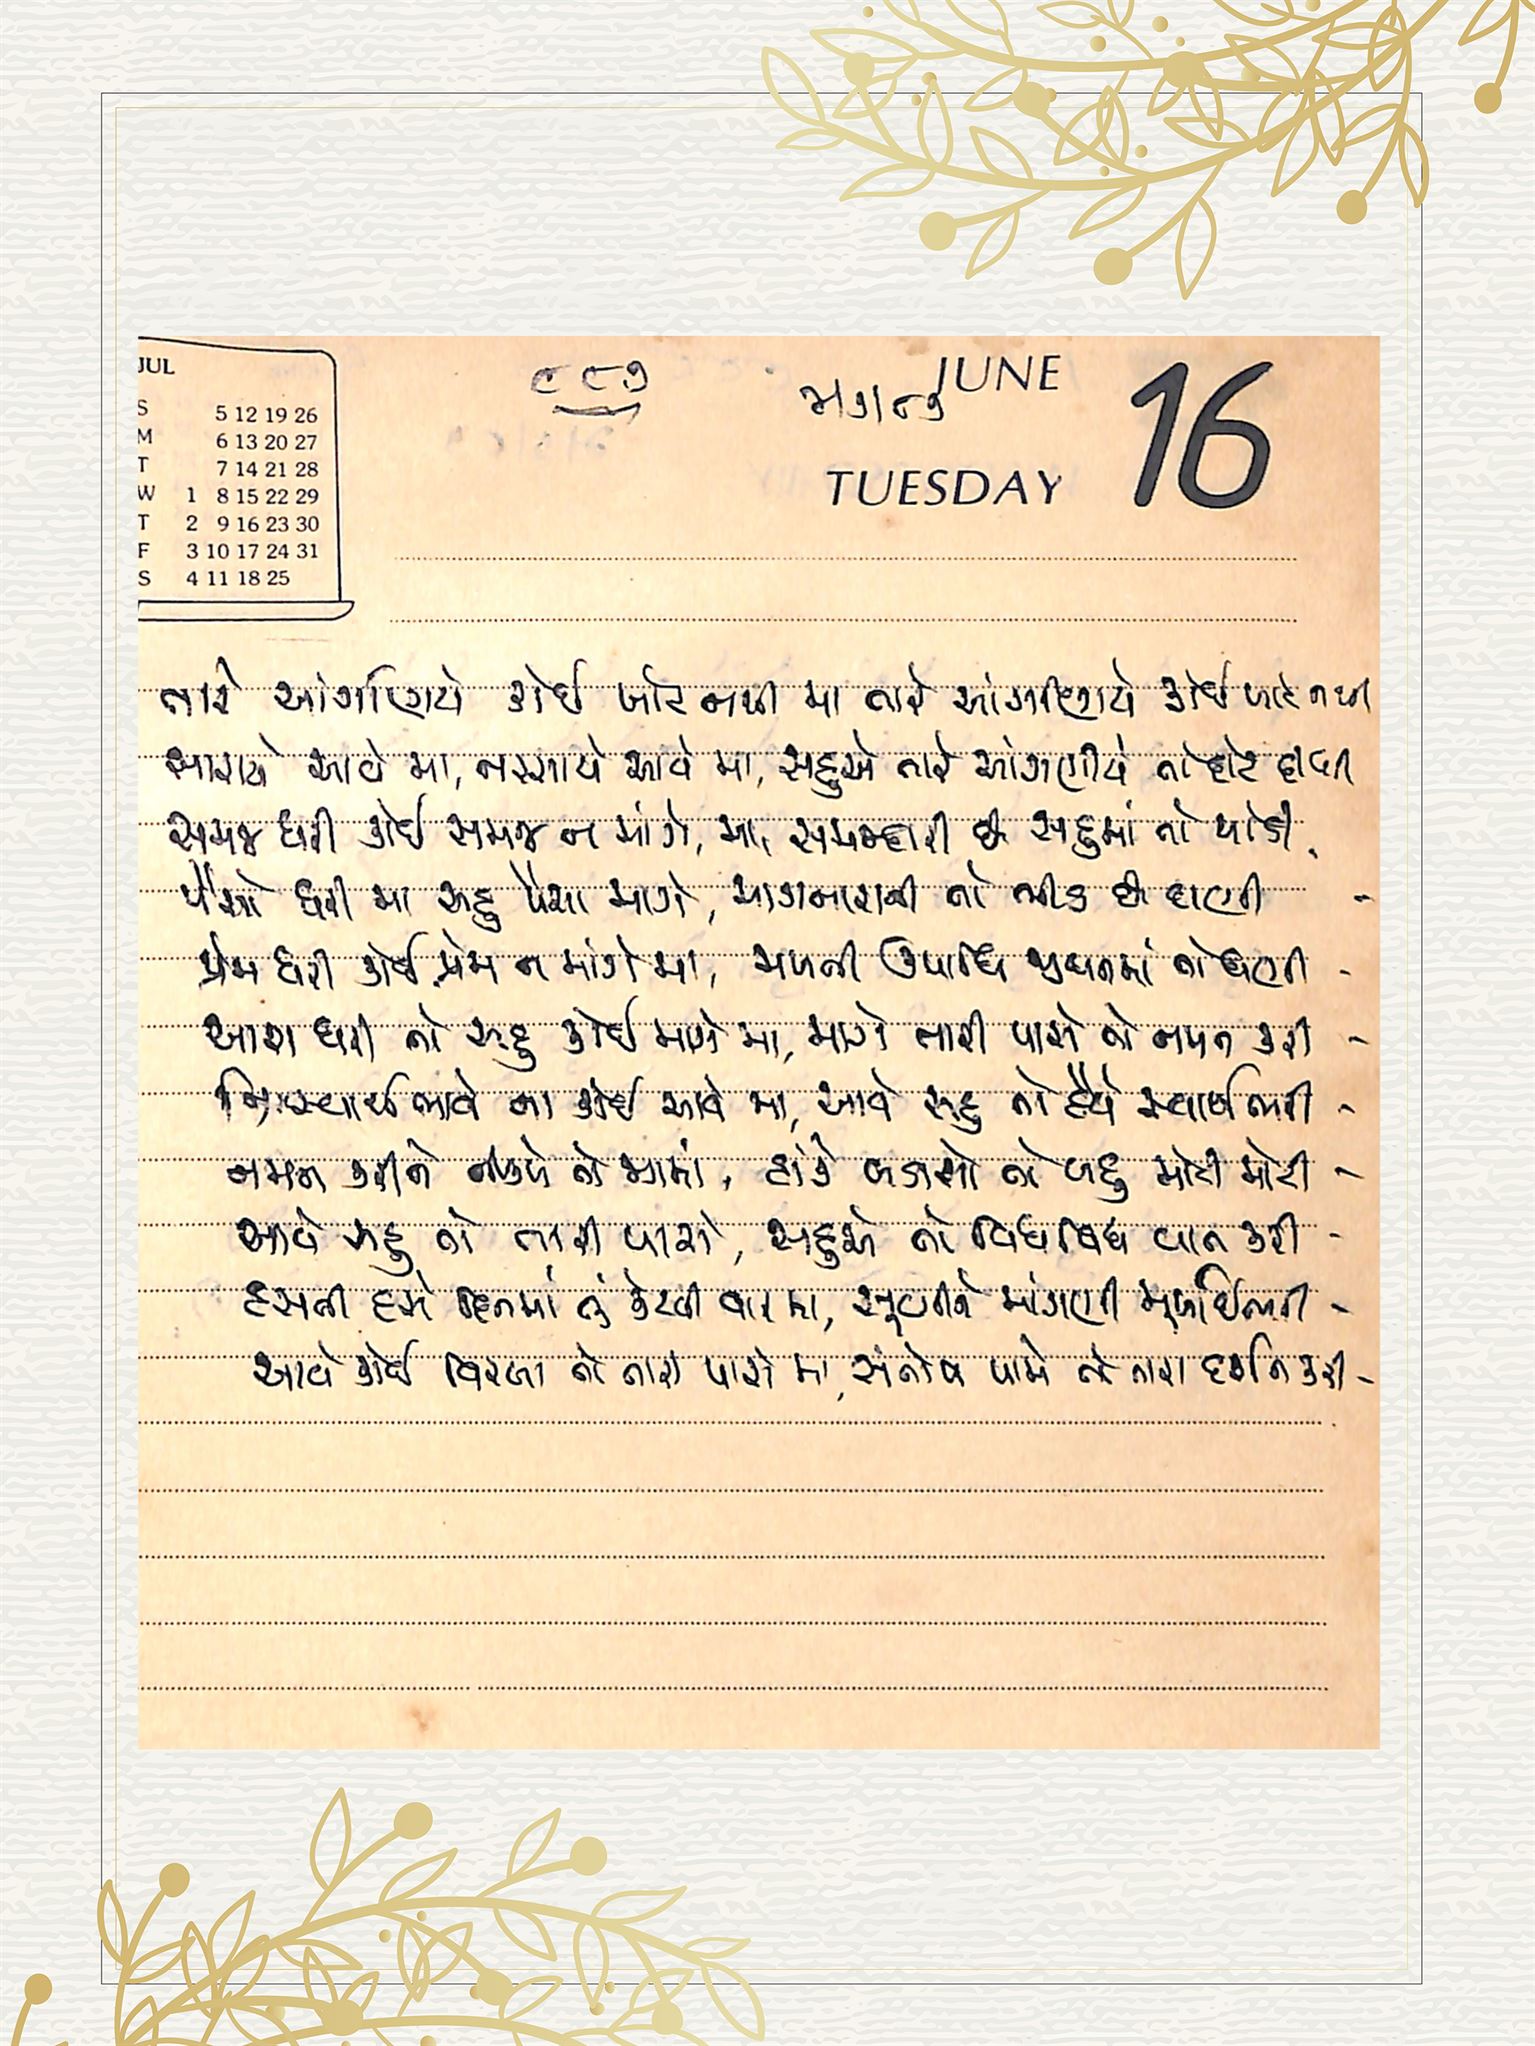 JUL
S 5 12 19 26
M 6 13 20 27
T 7 14 21 28
W 1 8 15 22 29
T 2 9 16 23 30
F 3 10 17 24 31
S 4 11 18 25
૮૮૭
JUNE 16
TUESDAY
તારે આંગણિયે કોઈ ખોટ નથી મા તારે આંગણિયે કોઈ ખોટ નથી
આવે મા, નરસાયે આવે મા, સહુએ તારે આંગણીયે તો દોટ દીધી
સમજ ધરી કોઈ સમજ ન માંગે, મા, સમજદારી છે સહુમાં તો થોડી.
પૈસો ધરી મા સહુ પૈસા માગે, માગનારાની તો ભીડ છે ઘણી -
પ્રેમ ધરી કોઈ પ્રેમ ન માંગે મા, મળની ઉપાધિ જીવનમાં તો ઘણી -
આશ ધરી તો સહુ કોઈ માગે મા, માગે તારી પાસે તો નમન કરી -
નિઃસ્વાર્થ ભાવે ના કોઈ આવે મા, આવે સહુ તો હૈયે સ્વાર્થ ભરી -
નમન કરીને તો માયામાં, હાંકે બડાશો તો બહુ મોટી મોટી -
આવે સહુ તો તારી પાસે, સહુએ તો વિધવિધ વાત કરી -
હસતી હશે દિનમાં તું કેટલી વાર મા, સૂણીને માંગણી મૂર્ખાઈભરી -
આવે કોઈ વિરલા તો તારી પાસે મા, સંતોષ પામે તે તારા દર્શન કરી -